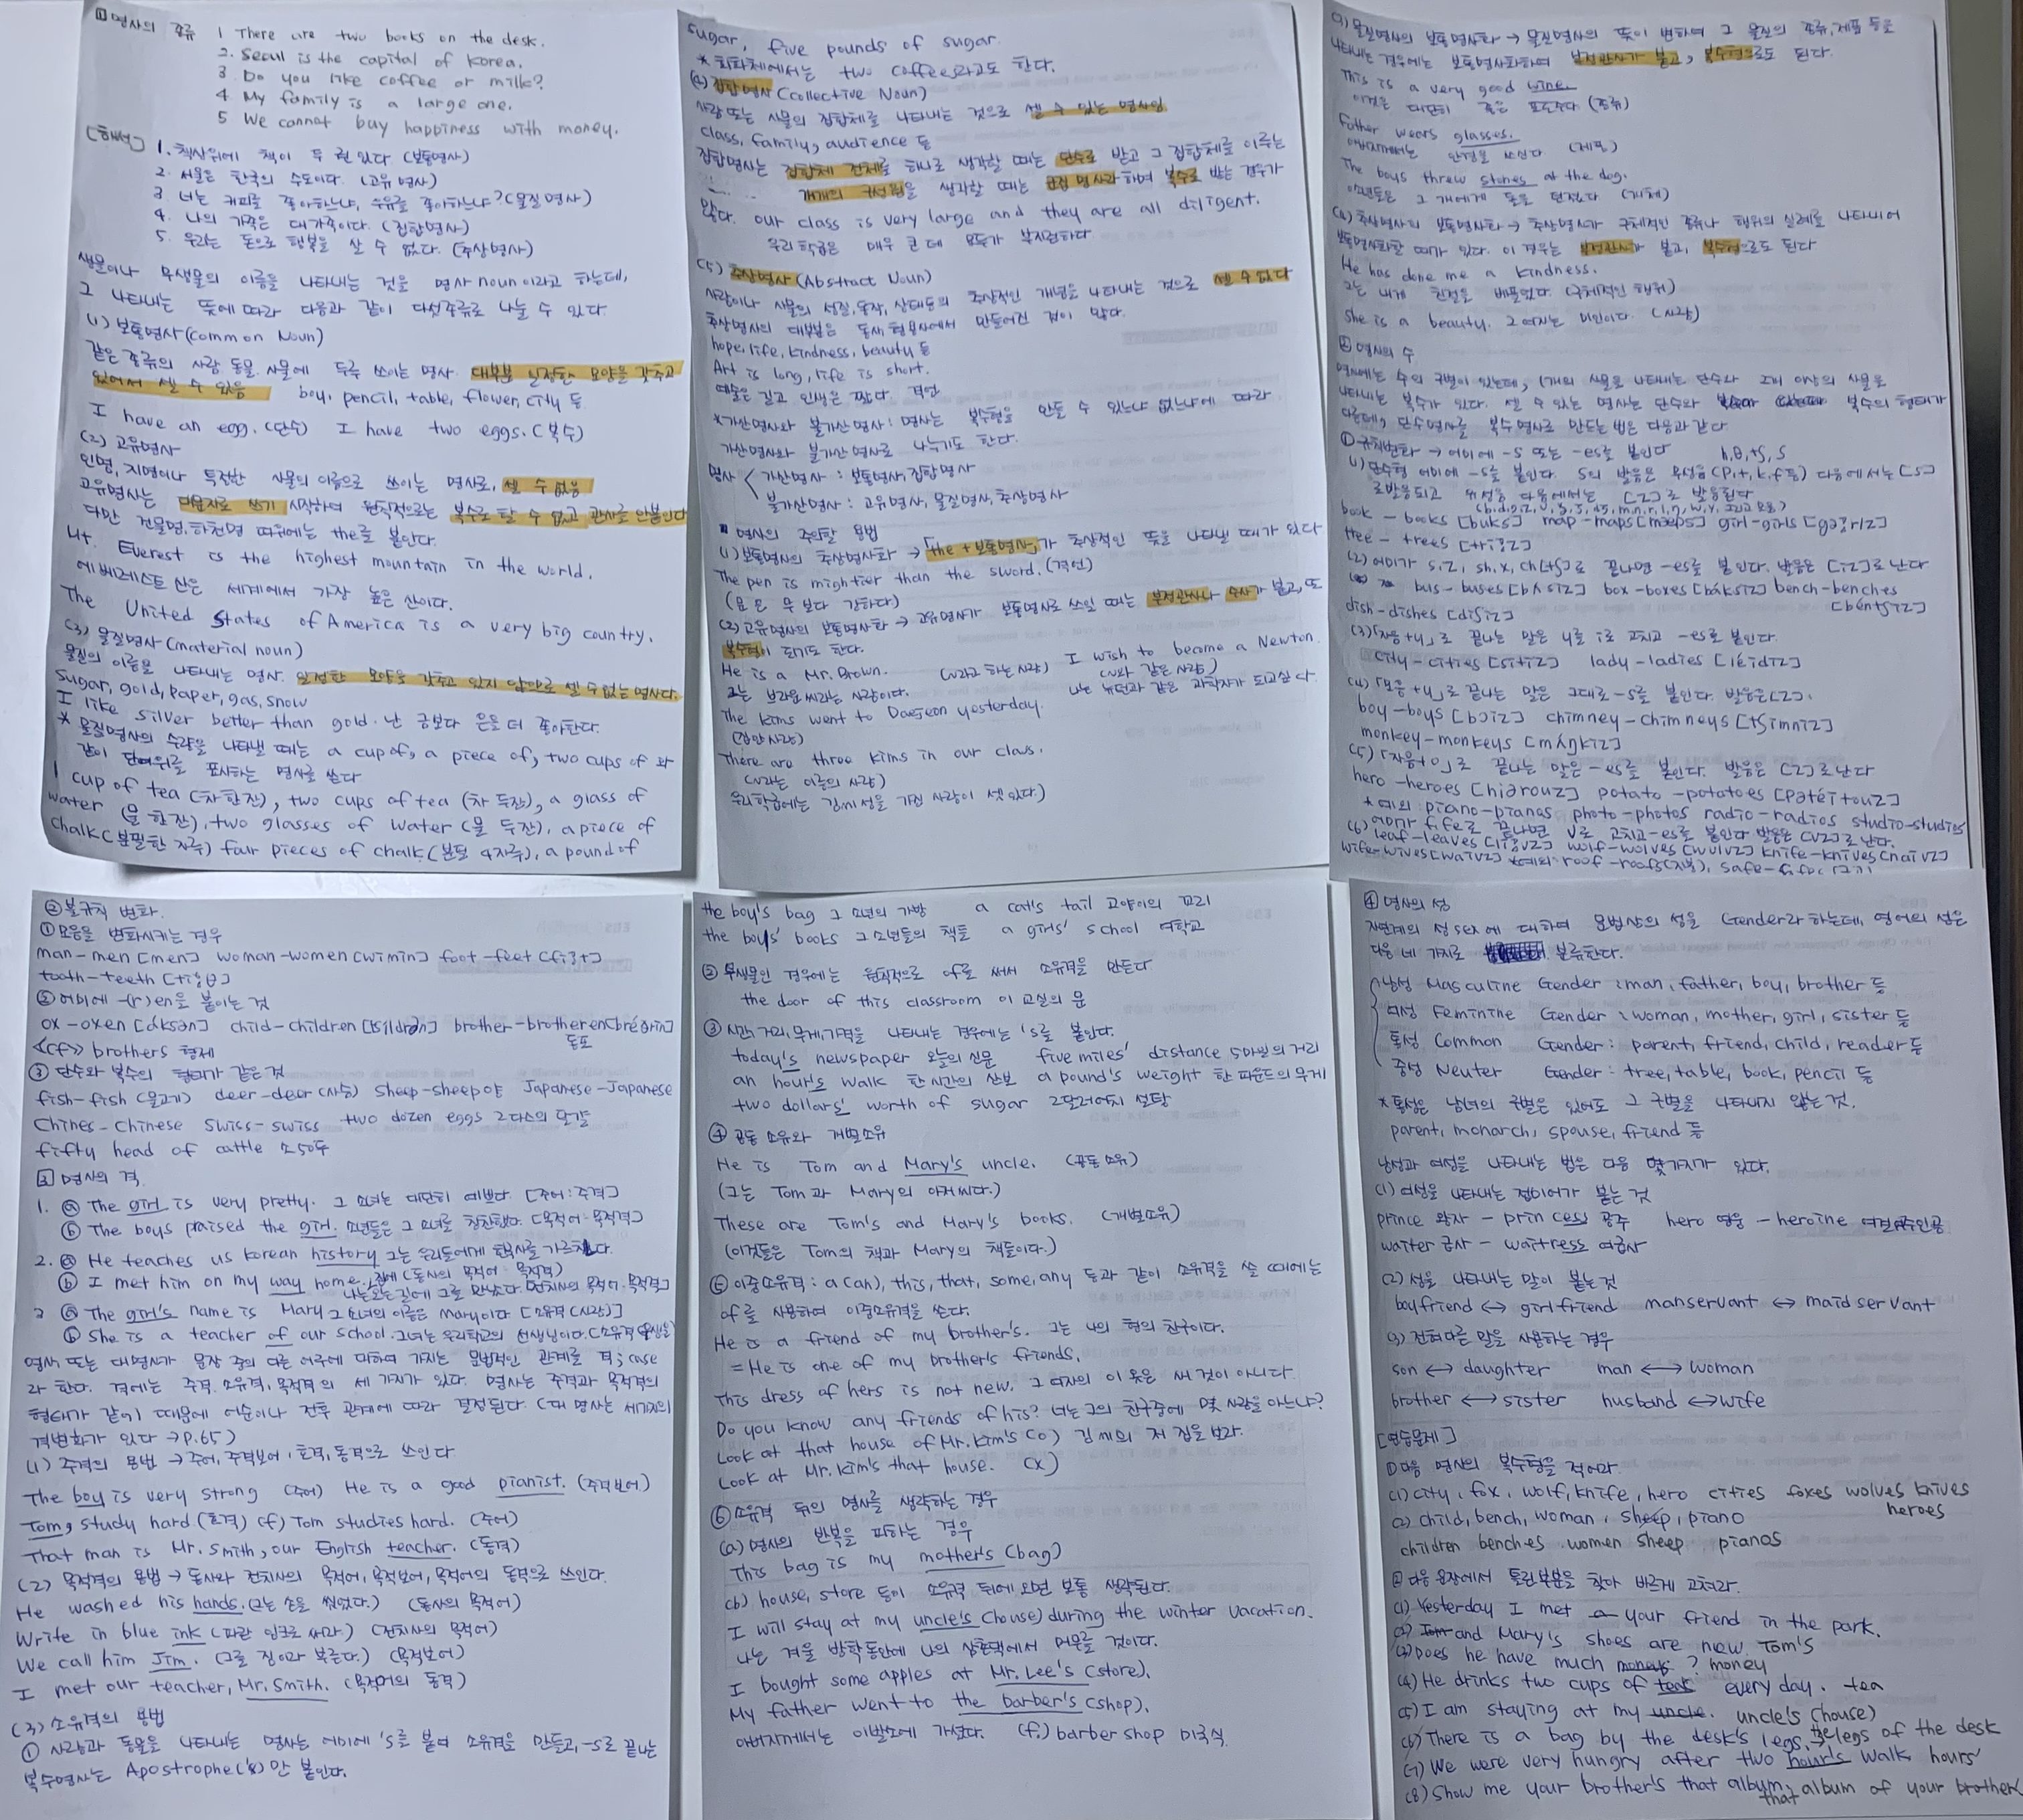 ① 명사의 종류 1 There are two books on the desk.
2. Seoul is the capital of Korea.
3. Do you like coffee or milk?
4 My family is a large one.
5 We cannot buy happiness with money.
[해석] 1. 책상위에 책이 두 권 있다 (보통명사)
2. 서울은 한국의 수도이다. (고유명사)
3 너는 커피를 좋아하느냐, 우유를 좋아하느냐? (물질명사)
4. 나의 가족은 대가족이다. (집합명사)
5. 우리는 돈으로 행복을 살 수 없다. (추상명사)
생물이나 무생물의 이름을 나타내는 것을 명사 noun이라고 하는데,
그 나타내는 뜻에 따라 다음과 같이 다섯종류로 나눌 수 있다.
(1) 보통명사(common Noun)
같은 종류의 사람 동물 사물에 두루 쓰이는 명사. 대부분 일정한 모양을 갖추고
있어서 셀 수 있음 boy, pencil, table, flower, city 등
I have an egg. (단수) I have two eggs. (복수)
(2) 고유명사
인명, 지명이나 특정한 사물의 이름으로 쓰이는 명사로, 셀 수 없음
고유명사는 대문자로 쓰기 시작하며 원칙적으로는 복수로 할 수 없고 관사를 안붙인다
다만 건물명, 하천명 따위에는 the를 붙인다.
Mt. Everest is the highest mountain in the world.
에베레스트 산은 세계에서 가장 높은 산이다.
The United States of America is a very big country.
(3) 물질명사(material noun)
물질의 이름을 나타내는 명사. 일정한 모양을 갖추고 있지 않으므로 셀 수 없는 명사다.
Sugar, gold, paper, gas, snow
I like silver better than gold. 난 금보다 은을 더 좋아한다.
* 물질명사의 수량을 나타낼 때는 a cup of, a piece of, two cups of 와
같이 단위를 표시하는 명사를 쓴다
1 cup of tea (차 한잔), two cups of tea (차 두잔), a glass of
water (물 한잔), two glasses of water (물 두잔), a piece of
chalk (분필 한 자루) four pieces of chalk (분필 4자루), a pound of
sugar, five pounds of sugar.
* 회화체에서는 two coffees라고도 한다.
(4) 집합명사 (Collective Noun)
사람 또는 사물의 집합체를 나타내는 것으로 셀 수 있는 명사임
class, family, audience 등
집합명사는 집합체 전체를 하나로 생각할 때는 단수로 받고 그 집합체를 이루는
개개의 구성원을 생각할 때는 군집 명사라 하며 복수로 받는 경우가
많다. our class is very large and they are all diligent.
우리 학급은 매우 큰 데 모두가 부지런하다.
(5) 추상명사 (Abstract Noun)
사람이나 사물의 성질, 동작, 상태등의 추상적인 개념을 나타내는 것으로 셀 수 없다
추상명사의 대부분은 동사, 형용사에서 만들어진 것이 많다.
hope, life, kindness, beauty 등
Art is long, life is short.
예술은 길고 인생은 짧다. 격언
*가산명사와 불가산명사: 명사는 복수형을 만들 수 있느냐 없느냐에 따라
가산명사와 불가산명사로 나누기도 한다.
명사 < 가산명사 : 보통명사, 집합명사
불가산명사 : 고유명사, 물질명사, 추상명사
■ 명사의 주의할 용법
(1) 보통명사의 추상명사화 → 「the + 보통명사」가 추상적인 뜻을 나타낼 때가 있다
The pen is mightier than the sword. (격언)
(문은 무보다 강하다)
(2) 고유명사의 보통명사화 → 고유명사가 보통명사로 쓰일 때는 부정관사나 수사가 붙고, 또
복수형이 되기도 한다.
He is a Mr. Brown. (~라고 하는 사람) I wish to become a Newton.
그는 브라운씨라는 사람이다. (~와 같은 사람) 나는 뉴턴과 같은 과학자가 되고싶다.
The Kims went to Daejeon yesterday.
(집안사람)
There are three Kims in our class.
(~라는 이름의 사람)
우리학급에는 김씨성을 가진 사람이 셋있다)
(3) 물질명사의 보통명사화 → 물질명사의 뜻이 변하여 그 물질의 종류, 제품 등을
나타내는 경우에는 보통명사화하여 부정관사가 붙고, 복수형으로도 된다.
This is a very good wine.
이것은 대단히 좋은 포도주다 (종류)
Father wears glasses.
아버지께서는 안경을 쓰신다 (제품)
The boys threw stones at the dog.
소년들은 그 개에게 돌을 던졌다 (개체)
(4) 추상명사의 보통명사화 → 추상명사가 구체적인 종류나 행위의 실례를 나타내어
보통명사화할 때가 있다. 이 경우는 부정관사가 붙고, 복수형으로도 된다
He has done me a kindness.
그는 내게 친절을 베풀었다. (구체적인 행위)
She is a beauty. 그 여자는 미인이다. (사람)
② 명사의 수
명사에는 수의 구별이 있는데, 1개의 사물을 나타내는 단수와 2개 이상의 사물을
나타내는 복수가 있다. 셀 수 있는 명사는 단수와 복수의 형태가
다른데, 단수명사를 복수명사로 만드는 법은 다음과 같다
① 규칙변화 → 어미에 -s 또는 -es를 붙인다 h, θ, ts, s
(1) 단수형 어미에 -s를 붙인다. s의 발음은 무성음(p, t, k, f 등) 다음에서는 [s]
로발음되고 유성음 다음에서는 [z]로 발음된다
book - books [buks] map - maps [mæps] girl - girls [gə:rlz]
tree - trees [tri:z]
(2) 어미가 s, z, sh, x, ch[tʃ]로 끝나면 -es를 붙인다. 발음은 [iz]로 난다
bus - buses [bʌsiz] box - boxes [báksiz] bench - benches
dish - dishes [díʃiz] [béntʃiz]
(3) 「자음+y」로 끝나는 말은 y를 i로 고치고 -es로 붙인다.
city - cities [sítiz] lady - ladies [léidiz]
(4) 「모음+y」로 끝나는 말은 그대로 -s를 붙인다. 발음은 [z].
boy - boys [bɔiz] chimney - chimneys [tʃímniz]
monkey - monkeys [mʌ́ŋkiz]
(5) 「자음+o」로 끝나는 말은 -es를 붙인다. 발음은 [z]로 난다
hero - heroes [hiərouz] potato - potatoes [pətéitouz]
* 예외 piano - pianos photo - photos radio - radios studio - studios
(6) 어미가 f, fe로 끝나면 v로 고치고 -es로 붙인다 발음은 [vz]로 난다.
leaf - leaves [li:vz] wolf - wolves [wulvz] knife - knives [naivz]
wife - wives [waivz] *예외: roof - roofs (지붕), safe -
② 불규칙 변화.
① 모음을 변화시키는 경우
man - men [men] woman - women [wimin] foot - feet [fi:t]
tooth - teeth [ti:θ]
② 어미에 -(r)en을 붙이는 것
ox - oxen [áksən] child - children [tʃildrən] brother - brotheren [breðrin]
<cf> brothers 형제 동포
③ 단수와 복수의 형태가 같은 것
fish - fish (물고기) deer - deer (사슴) sheep - sheep 양 Japanese - Japanese
Chines - Chinese Swiss - swiss two dozen eggs 2다스의 달걀
fifty head of cattle 소 50두
③ 명사의 격
1. ⓐ The girl is very pretty. 그 소녀는 대단히 예쁘다. [주어 : 주격]
ⓑ The boys praised the girl. 소년들은 그 소녀를 칭찬했다. [목적어 - 목적격]
2. ⓐ He teaches us Korean history 그는 우리들에게 한국사를 가르친다.
ⓑ I met him on my way home. 나는 오는 길에 그를 만났다. [전치사의 목적어 · 목적격]
3 ⓐ The girl's name is Mary 그 소녀의 이름은 Mary이다 [소유격 (사람)]
ⓑ She is a teacher of our school. 그녀는 우리학교의 선생님이다. [소유격 (무생물)]
명사 또는 대명사가 문장 중의 다른 어구에 대하여 가지는 문법적인 관계를 격; case
라 한다. 격에는 주격. 소유격, 목적격의 세 가지가 있다. 명사는 주격과 목적격의
형태가 같기 때문에 어순이나 전후 관계에 따라 결정된다. (대명사는 세가지의
격변화가 있다 → P.65)
(1) 주격의 용법 → 주어, 주격보어, 호격, 동격으로 쓰인다
The boy is very strong (주어) He is a good pianist. (주격보어)
Tom, study hard (호격) cf) Tom studies hard. (주어)
That man is Mr. Smith, our English teacher. (동격)
(2) 목적격의 용법 → 동사와 전치사의 목적어, 목적보어, 목적어의 동격으로 쓰인다.
He washed his hands. (그는 손을 씻었다.) (동사의 목적어)
Write in blue ink (파란 잉크로 써라) (전치사의 목적어)
We call him Jim. (그를 짐이라 부른다.) (목적보어)
I met our teacher, Mr. Smith. (목적어의 동격)
(3) 소유격의 용법
① 사람과 동물을 나타내는 명사는 어미에 's를 붙여 소유격을 만들고, -s로 끝나는
복수명사는 Apostrophe(')만 붙인다.
the boy's bag 그 소년의 가방 a cat's tail 고양이의 꼬리
the boys' books 그 소년들의 책들 a girls' school 여학교
② 무생물인 경우에는 원칙적으로 of를 써서 소유격을 만든다
the door of this classroom 이 교실의 문
③ 시간, 거리, 무게, 가격을 나타내는 경우에는 's를 붙인다.
today's newspaper 오늘의 신문 five miles' distance 5마일의 거리
an hour's walk 한 시간의 산보 a pound's weight 한 파운드의 무게
two dollars' worth of sugar 2달러어치 설탕
④ 공동 소유와 개별소유
He is Tom and Mary's uncle. (공동소유)
(그는 Tom과 Mary의 아저씨다.)
These are Tom's and Mary's books. (개별소유)
(이것들은 Tom의 책과 Mary의 책들이다.)
⑤ 이중소유격 : a(an), this, that, some, any 등과 같이 소유격을 쓸 때에는
of를 사용하여 이중소유격을 쓴다.
He is a friend of my brother's. 그는 나의 형의 친구이다.
= He is one of my brother's friends.
This dress of hers is not new. 그 여자의 이 옷은 새 것이 아니다
Do you know any friends of his? 너는 그의 친구중에 몇 사람을 아느냐?
Look at that house of Mr. Kim's (o) 김씨의 저 집을 보라.
Look at Mr. Kim's that house. (x)
⑥ 소유격 뒤의 명사를 생략하는 경우
(a) 명사의 반복을 피하는 경우
This bag is my mother's (bag)
(b) house, store 등이 소유격 뒤에 오면 보통 생략된다.
I will stay at my uncle's (house) during the winter vacation.
나는 겨울 방학동안에 나의 삼촌댁에서 머무를 것이다.
I bought some apples at Mr. Lee's (store).
My father went to the barber's (shop).
아버지께서는 이발소에 가셨다. (f.) barber shop 미국식
④ 명사의 성
자연계의 성 sex에 대하여 문법상의 성을 Gender라 하는데, 영어의 성은
다음 네 가지로 분류한다.
남성 Masculine Gender : man, father, boy, brother 등
여성 Feminine Gender : woman, mother, girl, sister 등
통성 Common Gender : parent, friend, child, reader 등
중성 Neuter Gender : tree, table, book, pencil 등
*통성은 남녀의 구별은 있어도 그 구별을 나타내지 않는 것.
parent, monarch, spouse, friend 등
남성과 여성을 나타내는 법은 다음 몇가지가 있다.
(1) 여성을 나타내는 접미어가 붙는 것
prince 왕자 - princess 공주 hero 영웅 - heroine 여걸, 여주인공
waiter 급사 - waitress 여급사
(2) 성을 나타내는 말이 붙는것
boyfriend ↔ girlfriend manservant ↔ maidservant
(3) 전혀다른 말을 사용하는 경우
son ↔ daughter man ↔ woman
brother ↔ sister husband ↔ wife
[연습문제]
① 다음 명사의 복수형을 적어라.
(1) city, fox, wolf, knife, hero cities foxes wolves knives
heroes
(2) child, bench, woman, sheep, piano
children benches women sheep pianos
② 다음 문장에서 틀린부분을 찾아 바르게 고쳐라.
(1) Yesterday I met a your friend in the park.
(2) Tom and Mary's shoes are new. Tom's
(3) Does he have much moneys? money
(4) He drinks two cups of teas every day. tea
(5) I am staying at my uncle. uncle's (house)
(6) There is a bag by the desk's legs. → the legs of the desk
(7) We were very hungry after two hour's walk. hours'
(8) Show me your brother's that album, that album of your brother